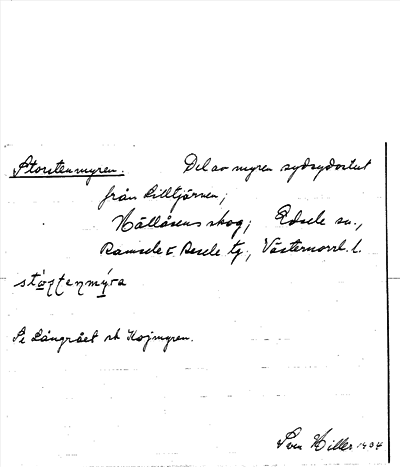 Storstenmyren. Del av myren sydsydostut
från Lilltjärnen;
Hällåsens skog; Edsele sn.,
Ramsele o. Resele tg., Västernorrl. l.
Se Långrået och Kojmyren.
Sven Hiller 1934